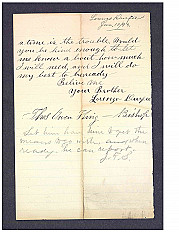 Lorenzo Dunford
Jan. 
a time is the trouble. Would
you be kind enough to let
me know about how much
I will need, and I will do
my best to be ready
Believe me
Your Brother
Lorenzo
Thos Owen King — Bishop
Let him have time to get the
means to go with, and when
ready he can report.
J. F. S.